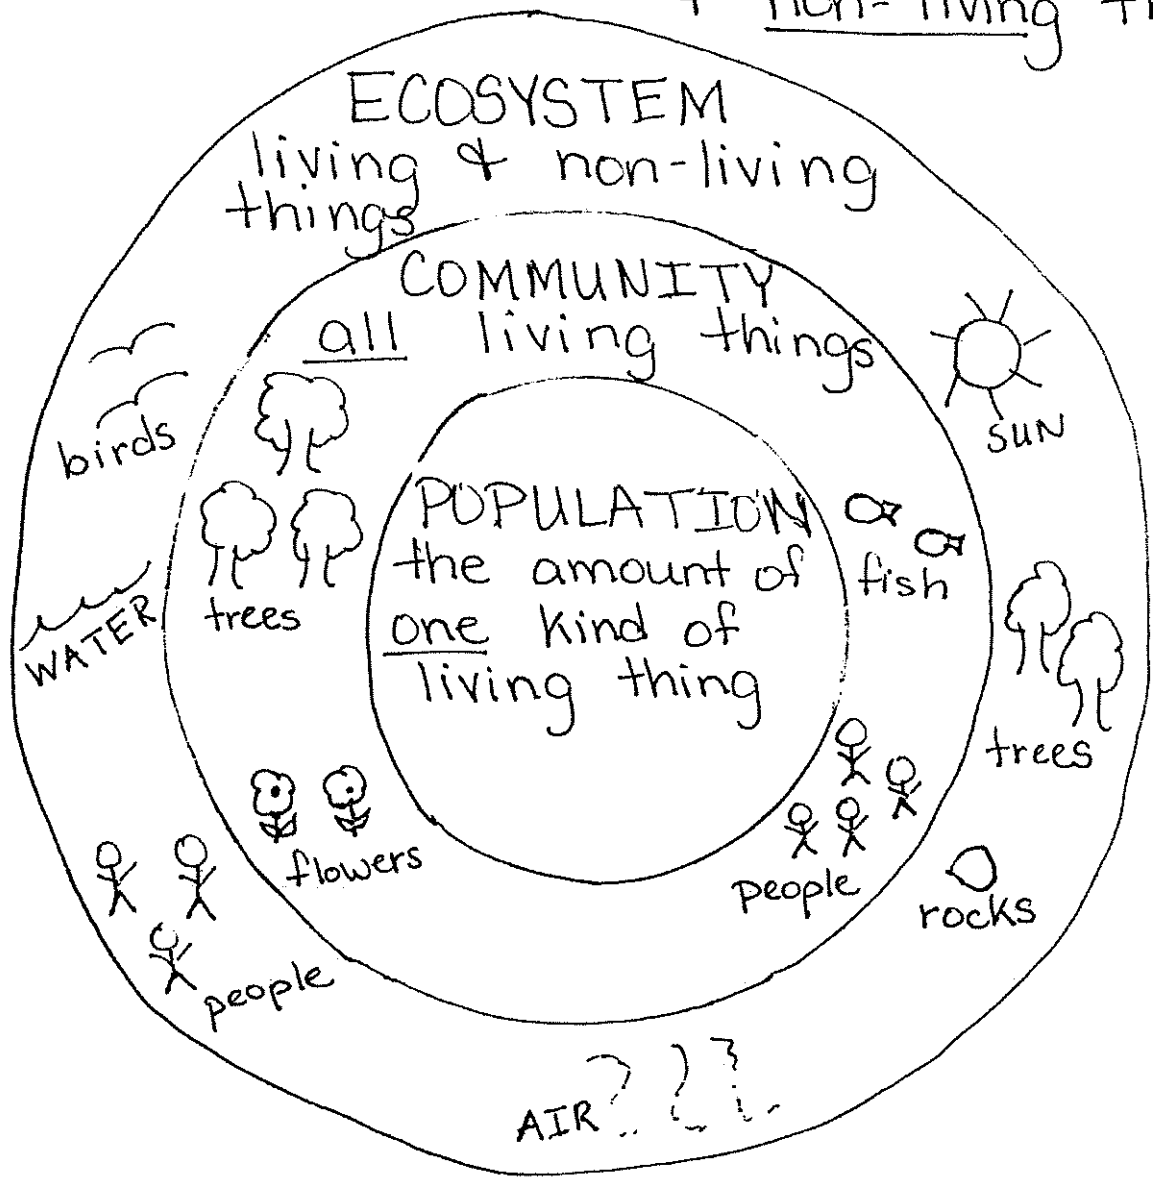 + non-living
ECOSYSTEM
living & non-living
things
COMMUNITY
all living things
birds
SUN
POPULATION
the amount of
one kind of
living thing
fish
trees
WATER
trees
flowers
people
rocks
people
AIR